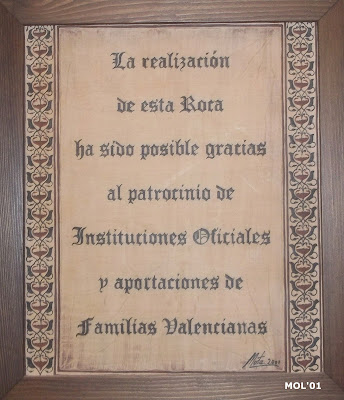 La realización
de esta Roca
ha sido posible gracias
al patrocinio de
Instituciones Oficiales
y aportaciones de
Familias Valencianas
MOL'01